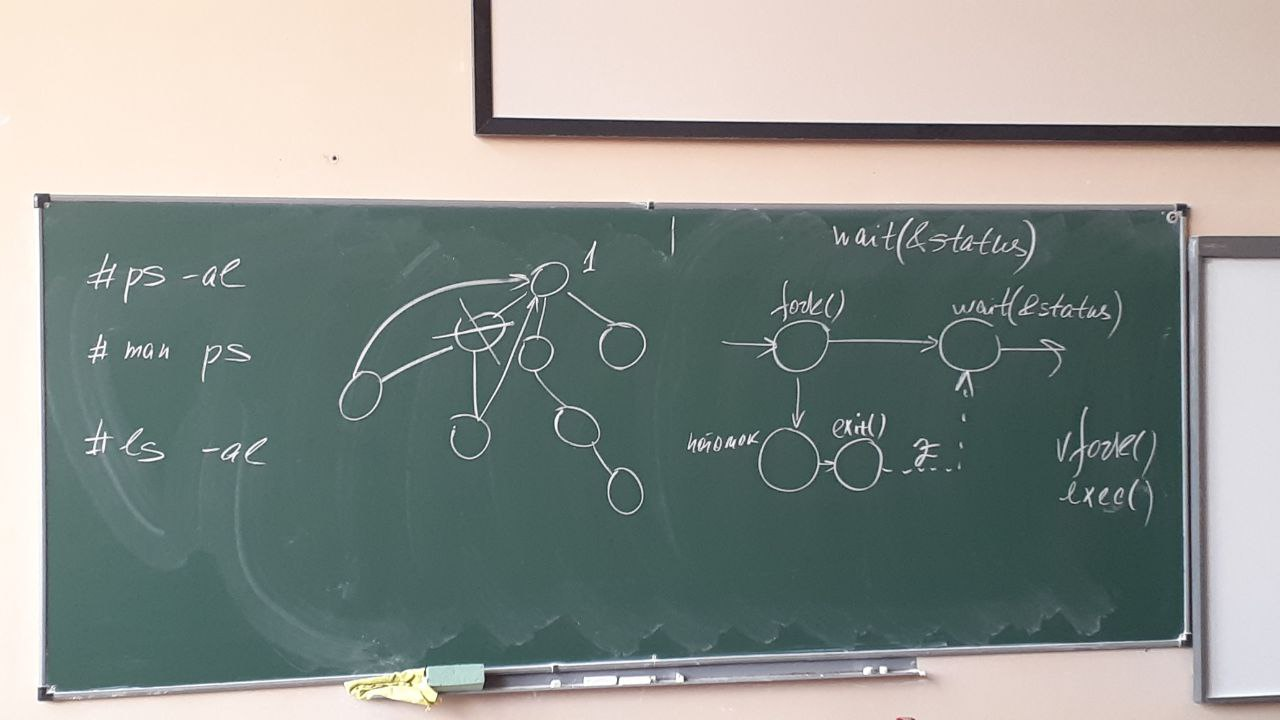 #ps -al
# man ps
#ls -al
1
wait(&status)
fork()
wait(&status)
потомок
exit()
z
vfork()
exec()